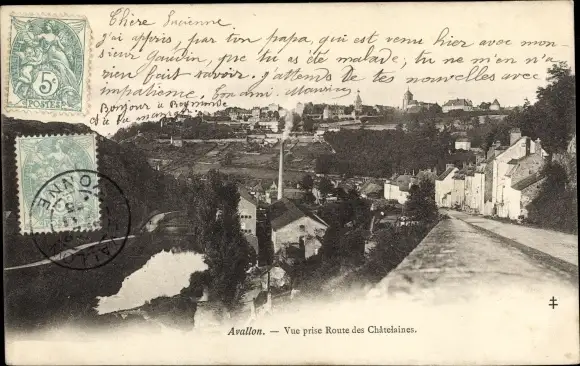 Chère Lucienne
j'ai appris, par ton papa, qui est venu hier avec mon-
sieur Gaudin, que tu as été malade, tu ne m'en n'a
rien fait savoir, j'attends de tes nouvelles avec
impatience. Ton amie. Maurine
Bonjour à Raymonde
à ta maman
5
POSTES
AVALLON
YONNE
Avallon. — Vue prise Route des Châtelaines.